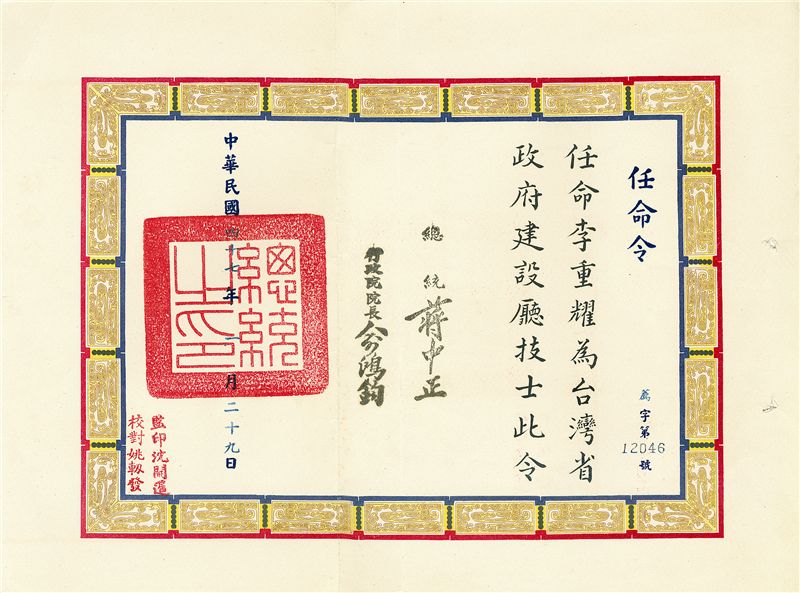 任命令
薦字第
12046
號
任命李重耀為台灣省
政府建設廳技士此令
總統 蔣中正
行政院院長 俞鴻鈞
中華民國四十七年一月二十九日
總統之印
監印沈開運
校對姚軔發